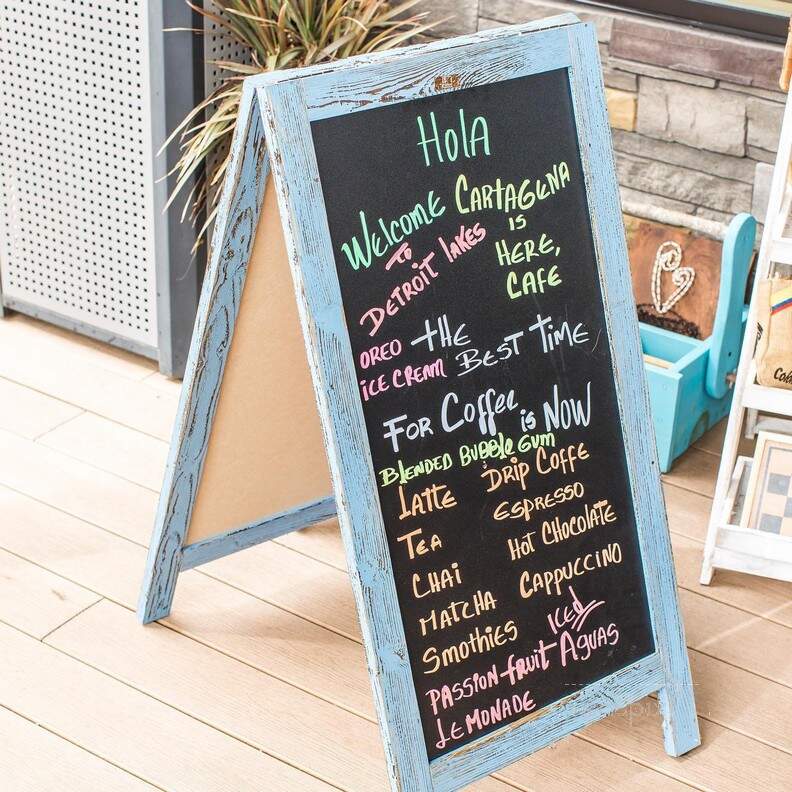 Hola
Welcome
TO
DETROIT LAKES
CARTAGENA
IS
HERE,
CAFE
OREO
ICE CREAM
THE
BEST TIME
FOR Coffee is NOW
BLENDED BUBBLE GUM
LATTE
TEA
CHAI
MATCHA
Smothies
DRIP COFFE
ESPRESSO
HOT CHOCOLATE
CAPPUCCINO
ICED
PASSION-fruit AGUAS
LEMONADE